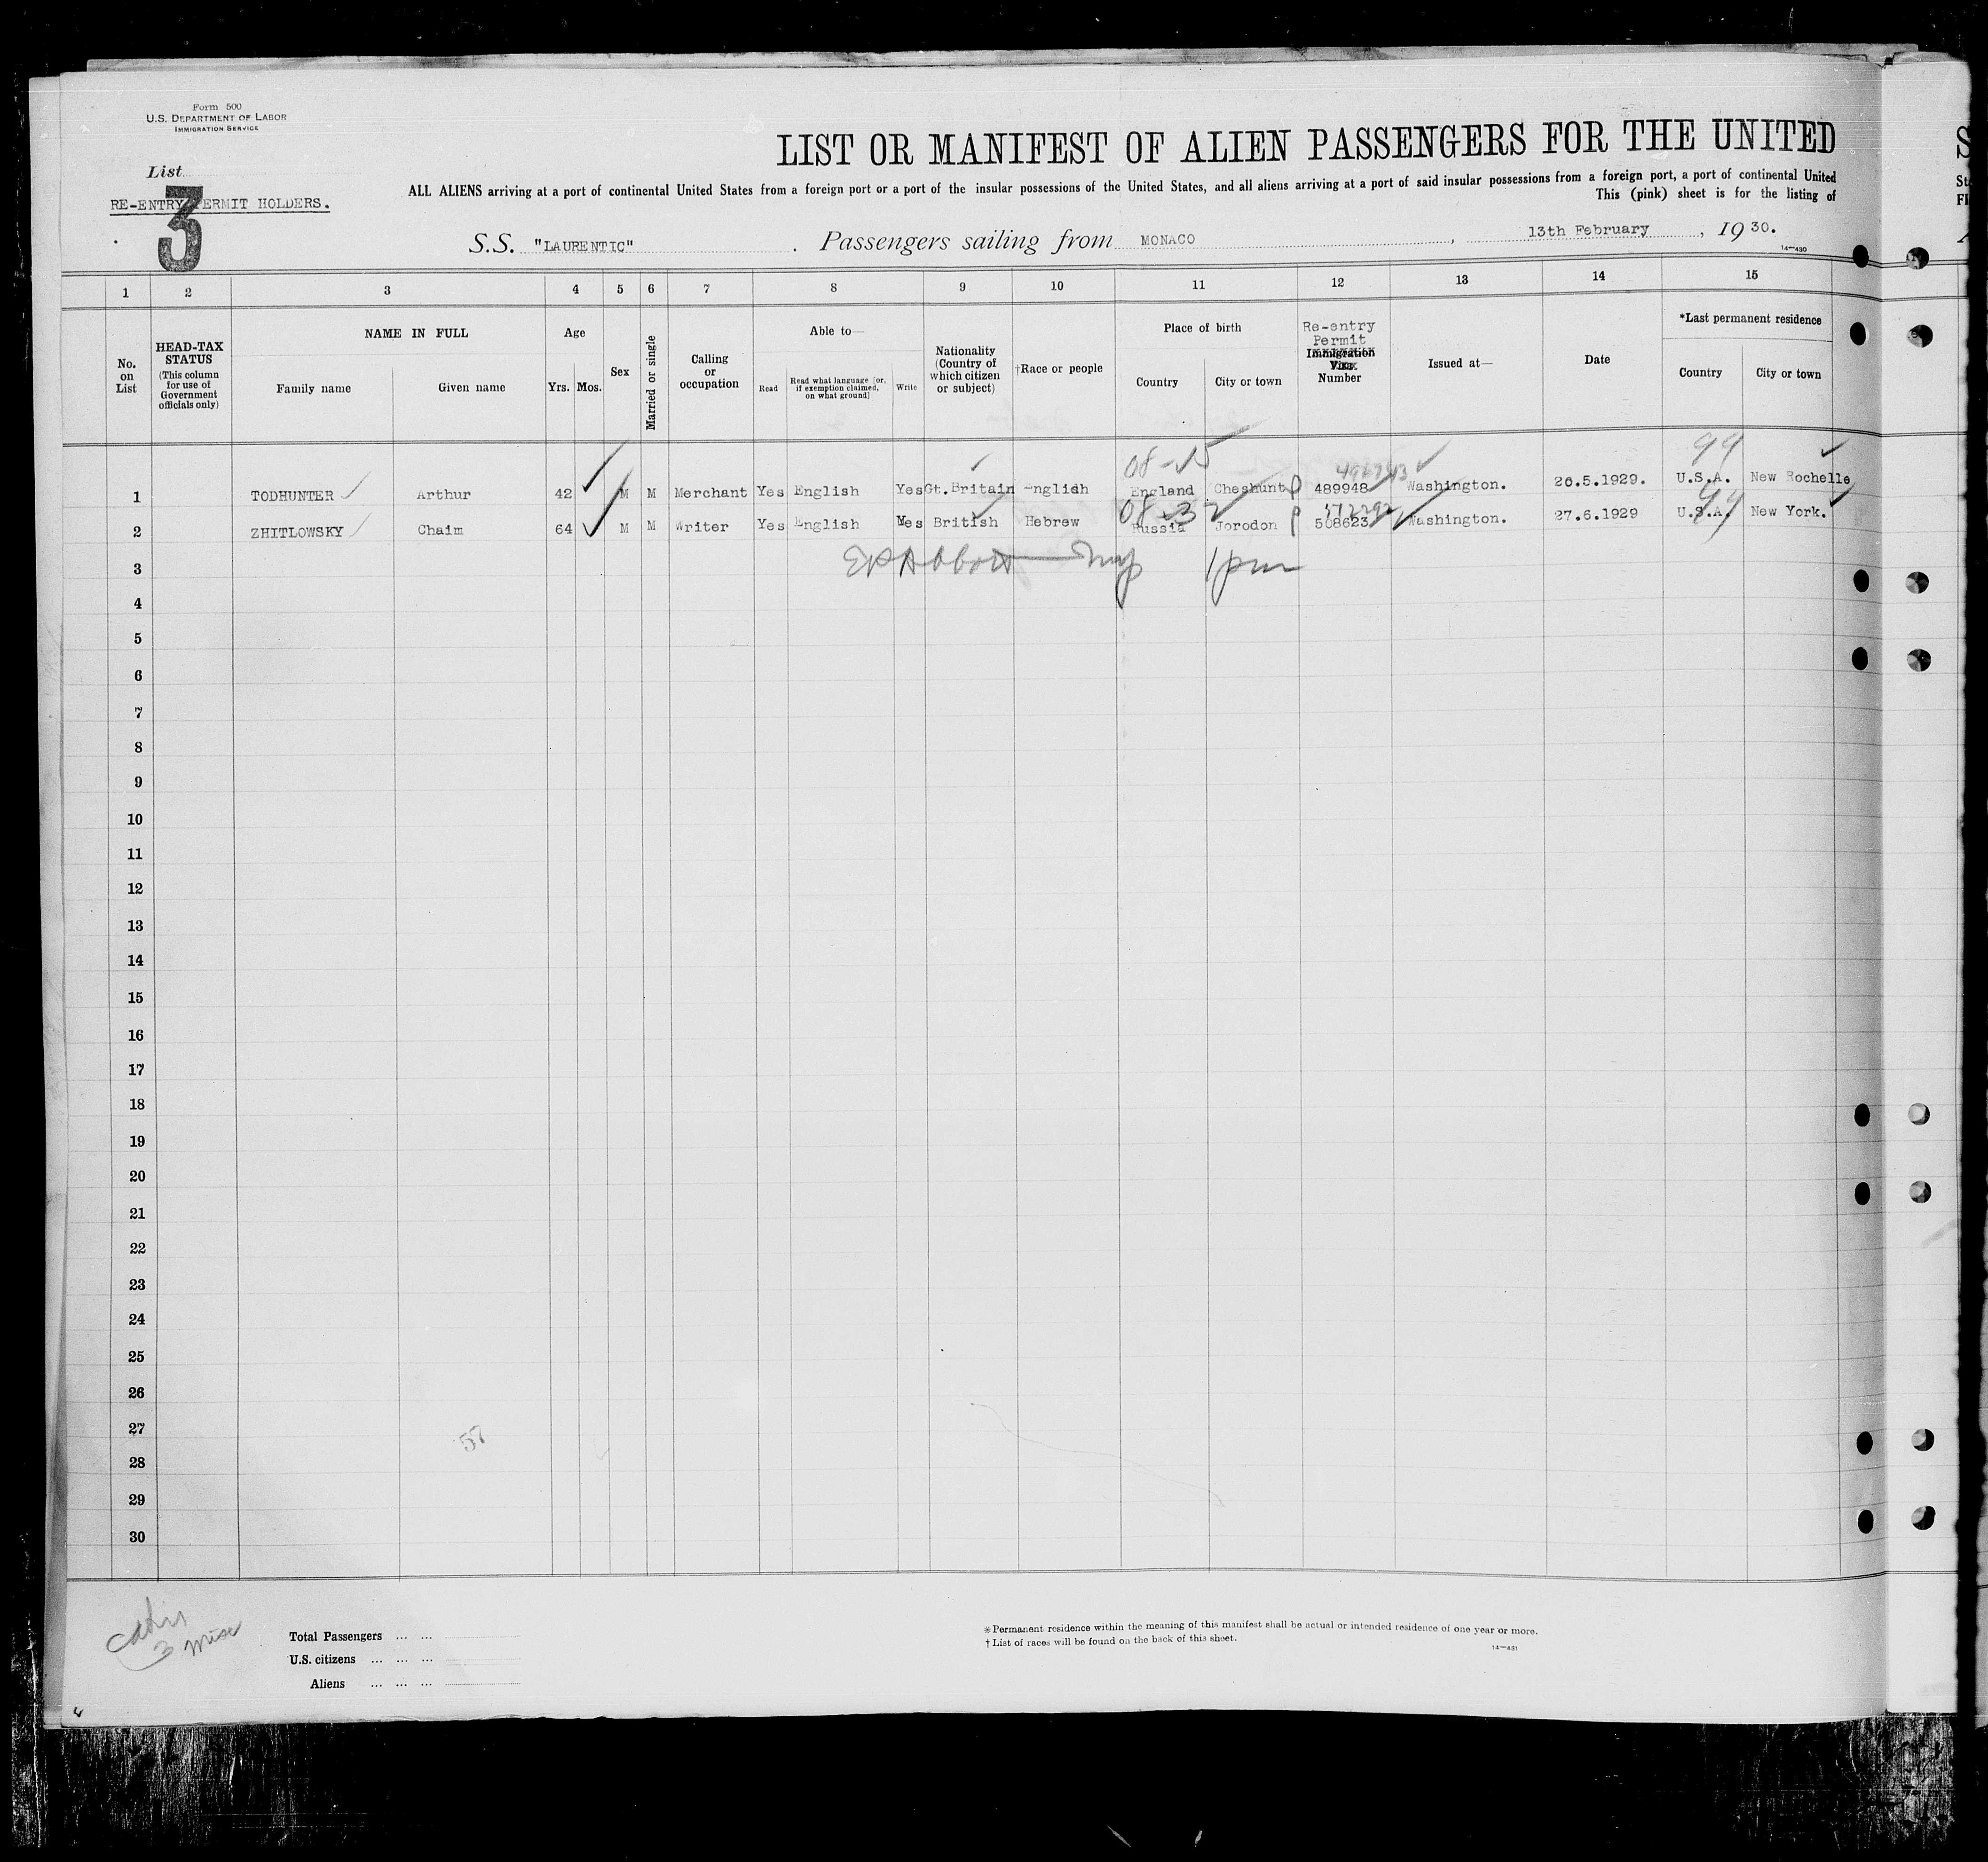 Form 500
U.S. DEPARTMENT OF LABOR
IMMIGRATION SERVICE
List
3
RE-ENTRY PERMIT HOLDERS.
LIST OR MANIFEST OF ALIEN PASSENGERS FOR THE UNITED
ALL ALIENS arriving at a port of continental United States from a foreign port or a port of the insular possessions of the United States, and all aliens arriving at a port of said insular possessions from a foreign port, a port of continental United
This (pink) sheet is for the listing of
S.S. "LAURENTIC" . Passengers sailing from MONACO , 13th February , 1930.
14—430
1 2 3 4 5 6 7 8 9 10 11 12 13 14 15
No. on List
HEAD-TAX STATUS (This column for use of Government officials only)
NAME IN FULL
Family name Given name
Age
Yrs. Mos.
Sex
Married or single
Calling or occupation
Able to—
Read Read what language [or, if exemption claimed, on what ground] Write
Nationality (Country of which citizen or subject)
†Race or people
Place of birth
Country City or town
Re-entry Permit
Immigration Visa
Number
Issued at—
Date
*Last permanent residence
Country City or town
08-15 99
1 TODHUNTER Arthur 42 M M Merchant Yes English Yes Gt.Britain English England Cheshunt 489948 Washington. 26.5.1929. U.S.A. New Rochelle
08-3 99
2 ZHITLOWSKY Chaim 64 M M Writer Yes English Yes British Hebrew Russia Jorodon 508623 Washington. 27.6.1929 U.S.A. New York.
3 1pm
4
5
6
7
8
9
10
11
12
13
14
15
16
17
18
19
20
21
22
23
24
25
26
27
57
28
29
30
3
Total Passengers ... ...
U.S. citizens ... ... ...
Aliens ... ... ...
* Permanent residence within the meaning of this manifest shall be actual or intended residence of one year or more.
† List of races will be found on the back of this sheet.
14—431